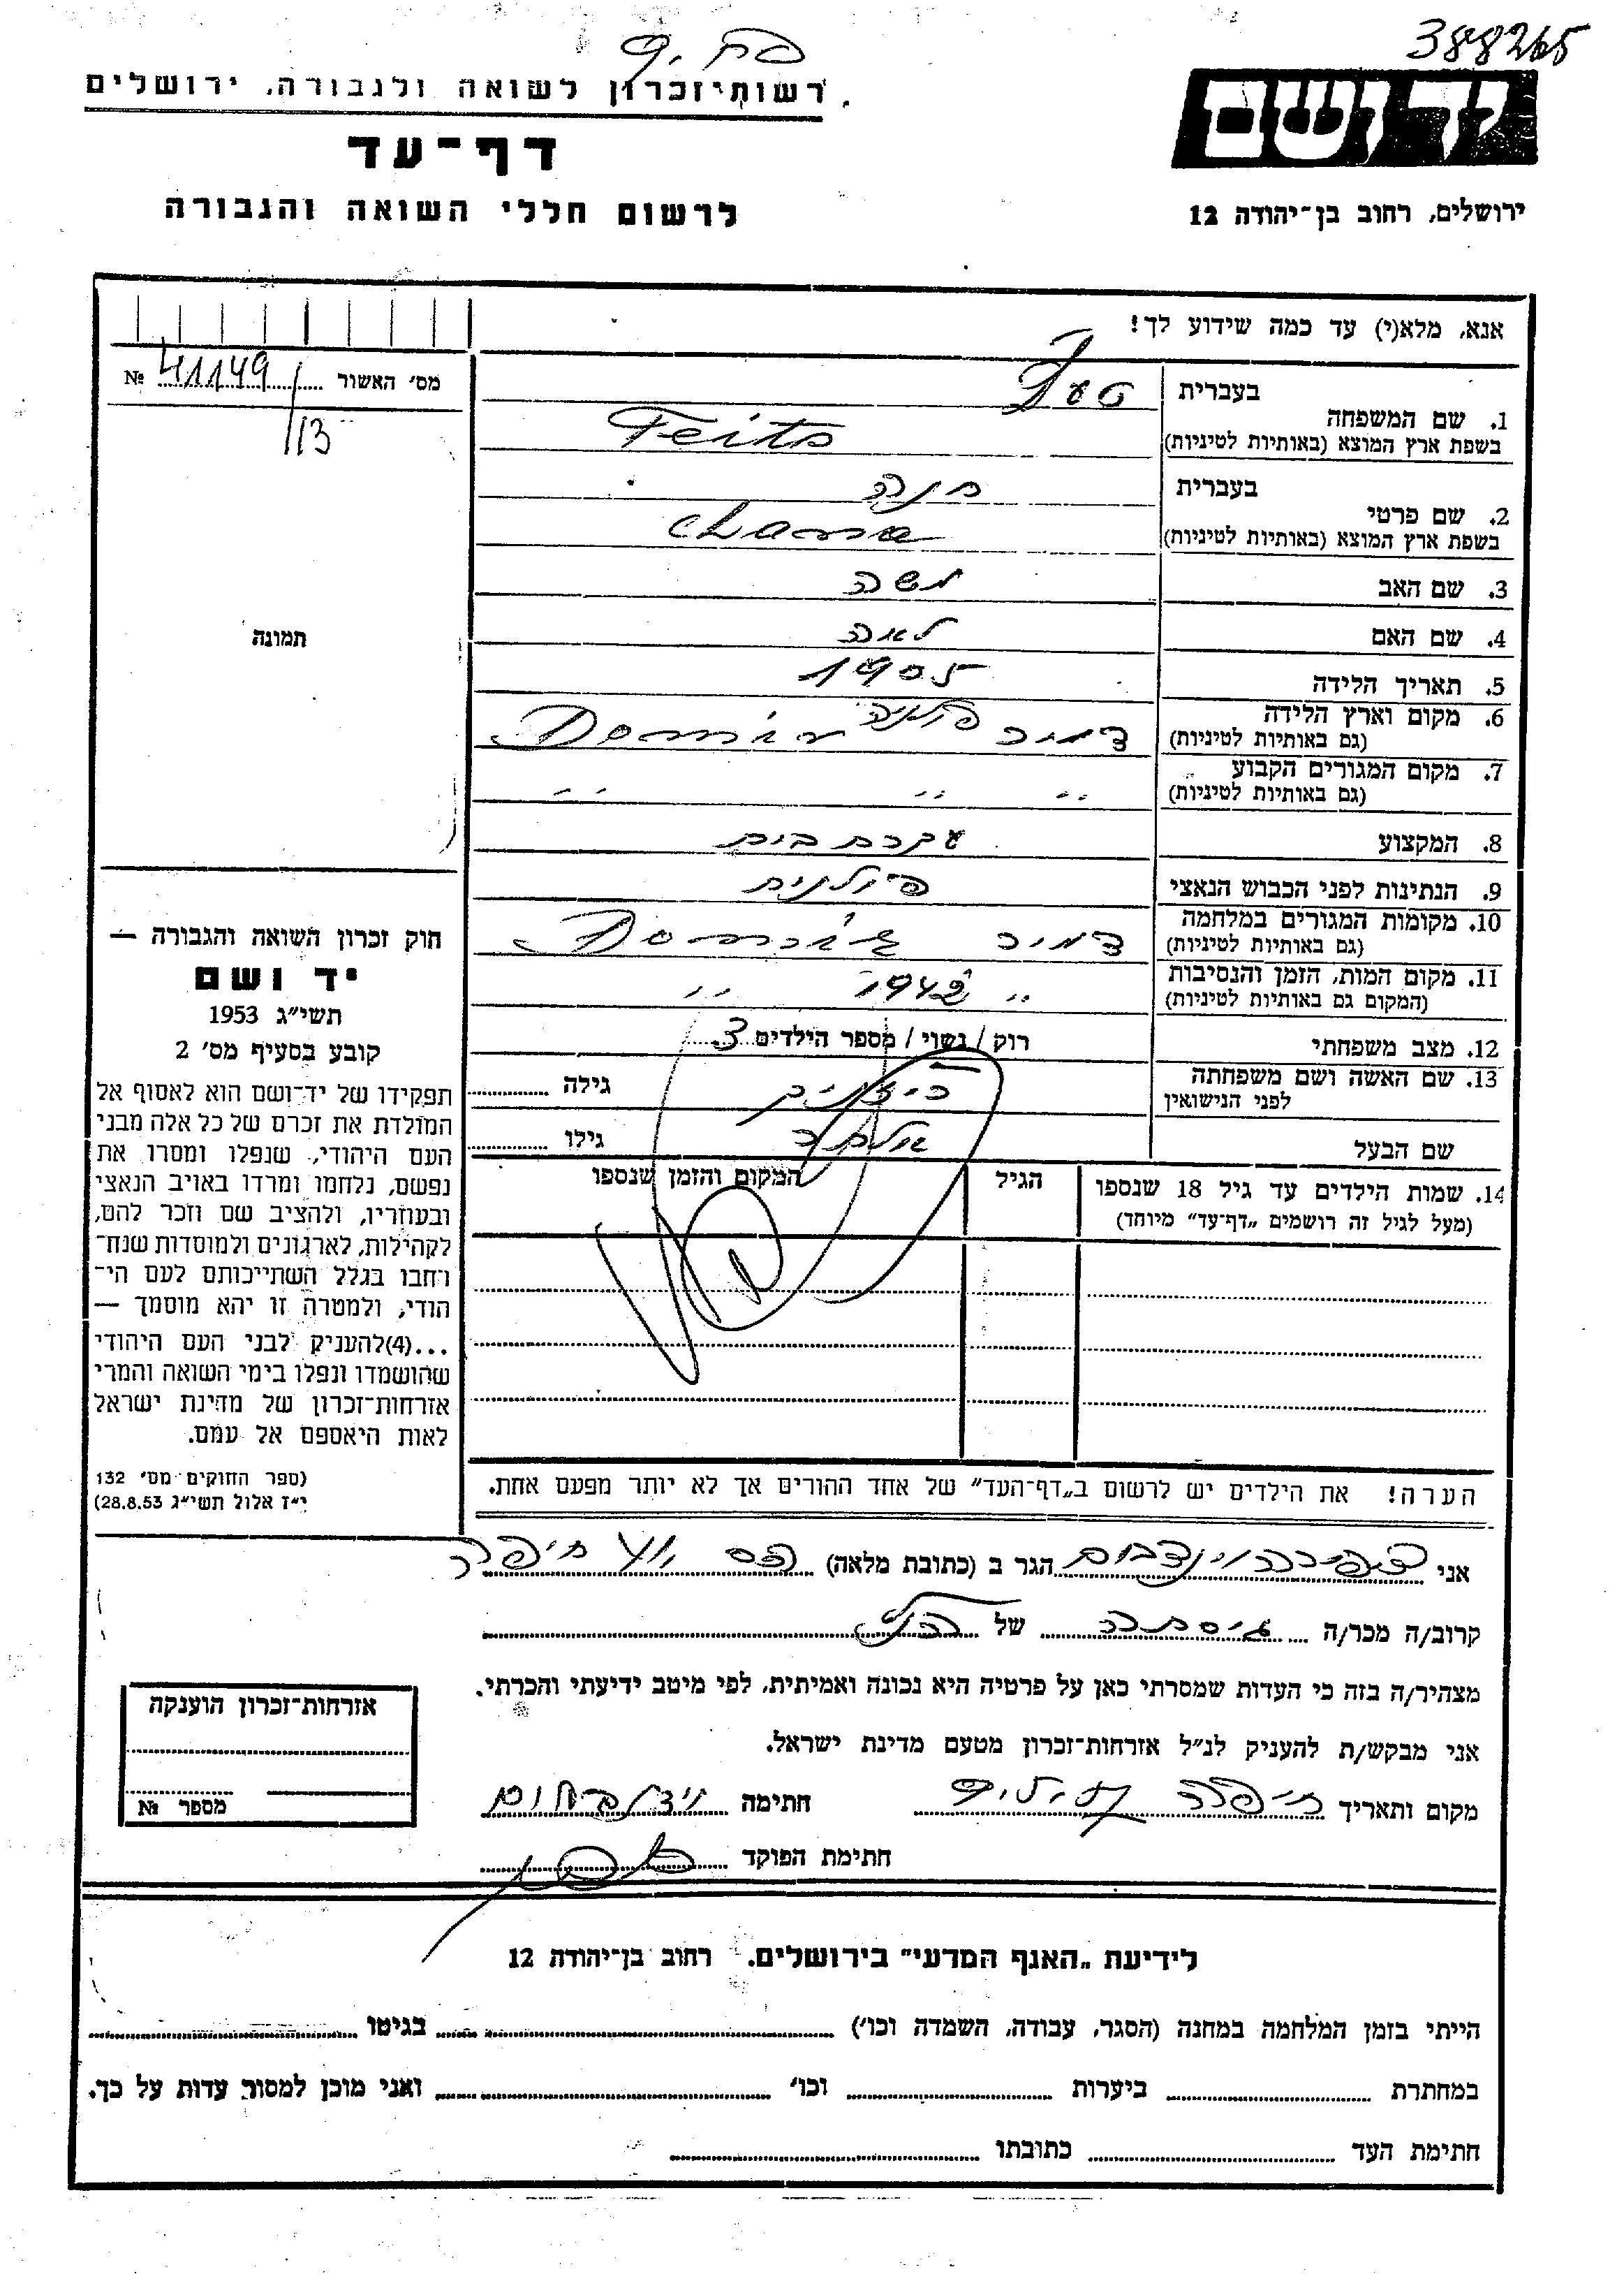 פח. 9
388265
רשות־זכרון לשואה ולגבורה, ירושלים
יד ושם
דף־עד
לרשום חללי השואה והגבורה
ירושלים, רחוב בן־יהודה 12
אנא, מלא(י) עד כמה שידוע לך!
מס׳ האשור 41149 №
/13
תמונה
1. שם המשפחה
בעברית
בשפת ארץ המוצא (באותיות לטיניות)
2. שם פרטי
בעברית חנה
בשפת ארץ המוצא (באותיות לטיניות) Chana
3. שם האב משה
4. שם האם לאה
5. תאריך הלידה 1905
6. מקום וארץ הלידה פולניה
(גם באותיות לטיניות)
7. מקום המגורים הקבוע
(גם באותיות לטיניות) ״ ״ ״
8. המקצוע עקרת בית
9. הנתינות לפני הכבוש הנאצי פולנית
10. מקומות המגורים במלחמה
(גם באותיות לטיניות)
11. מקום המות, הזמן והנסיבות
(המקום גם באותיות לטיניות) ״ 1942 ״
12. מצב משפחתי רוק / נשוי / מספר הילדים 3
13. שם האשה ושם משפחתה
לפני הנישואין גילה
שם הבעל גילו
14. שמות הילדים עד גיל 18 שנספו הגיל המקום והזמן שנספו
(מעל לגיל זה רושמים „דף־עד״ מיוחד)
הערה! את הילדים יש לרשום ב„דף־העד״ של אחד ההורים אך לא יותר מפעם אחת.
חוק זכרון השואה והגבורה —
יד ושם
תשי״ג 1953
קובע בסעיף מס׳ 2
תפקידו של יד־ושם הוא לאסוף אל
המולדת את זכרם של כל אלה מבני
העם היהודי, שנפלו ומסרו את
נפשם, נלחמו ומרדו באויב הנאצי
ובעוזריו, ולהציב שם וזכר להם,
לקהילות, לארגונים ולמוסדות שנח־
רבו בגלל השתייכותם לעם הי־
הודי, ולמטרה זו יהא מוסמך —
...(4)להעניק לבני העם היהודי
שהושמדו ונפלו בימי השואה והמרי
אזרחות־זכרון של מדינת ישראל
לאות היאספם אל עמם.
(ספר החוקים מס׳ 132
י״ז אלול תשי״ג 28.8.53)
אני הגר ב (כתובת מלאה) חיפה
קרוב/ה מכר/ה גיסתה של הנ״ל
מצהיר/ה בזה כי העדות שמסרתי כאן על פרטיה היא נכונה ואמיתית, לפי מיטב ידיעתי והכרתי.
אני מבקש/ת להעניק לנ״ל אזרחות־זכרון מטעם מדינת ישראל.
מקום ותאריך חיפה חתימה
חתימת הפוקד
אזרחות־זכרון הוענקה
מספר №
לידיעת „האגף המדעי״ בירושלים. רחוב בן־יהודה 12
הייתי בזמן המלחמה במחנה (הסגר, עבודה, השמדה וכו׳) בגיטו
במחתרת ביערות וכו׳ ואני מוכן למסור עדות על כך.
חתימת העד כתובתו